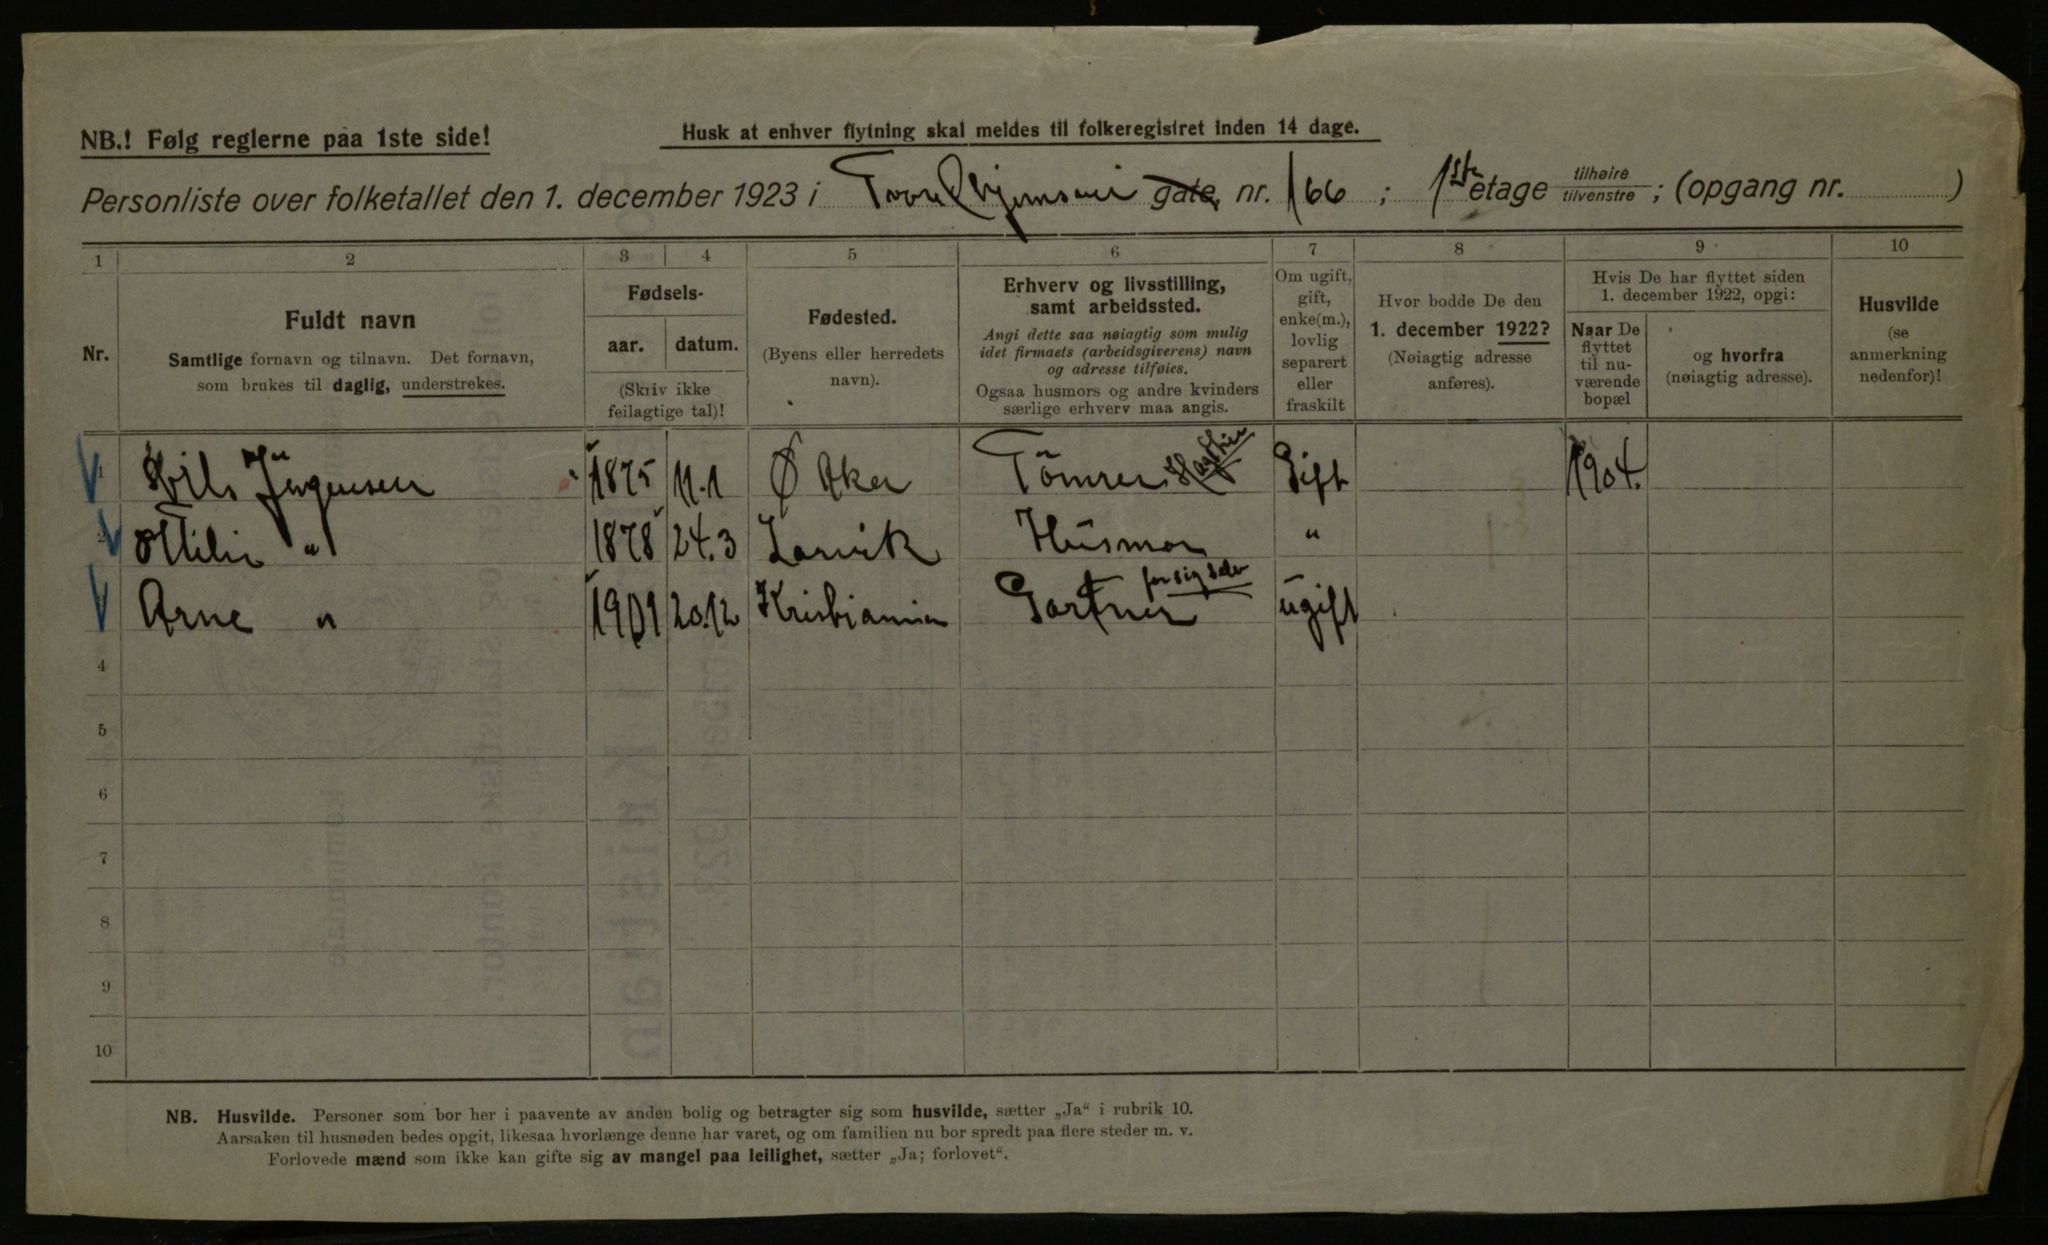 NB.! Følg reglerne paa 1ste side!
Husk at enhver flytning skal meldes til folkeregistret inden 14 dage.
Personliste over folketallet den 1. december 1923 i gate nr. 166 ; 1ste etage tilhøire tilvenstre ; (opgang nr. )
1 2 3 4 5 6 7 8 9 10
Nr.
Fuldt navn
Samtlige fornavn og tilnavn. Det fornavn,
som brukes til daglig, understrekes.
Fødsels-
aar. datum.
(Skriv ikke
feilagtige tal)!
Fødested.
(Byens eller herredets
navn).
Erhverv og livsstilling,
samt arbeidssted.
Angi dette saa nøiagtig som mulig
idet firmaets (arbeidsgiverens) navn
og adresse tilføies.
Ogsaa husmors og andre kvinders
særlige erhverv maa angis.
Om ugift,
gift,
enke(m.),
lovlig
separert
eller
fraskilt
Hvor bodde De den
1. december 1922?
(Nøiagtig adresse
anføres).
Hvis De har flyttet siden
1. december 1922, opgi:
Naar De
flyttet
til nu-
værende
bopæl
og hvorfra
(nøiagtig adresse).
Husvilde
(se
anmerkning
nedenfor)!
1 Nils Jürgensen 1875 11.1 Ø Aker Tömrer Gift 1904.
2 Ottilie " 1878 24.3 Larvik Husmor "
3 Arne " 1901 20.12 Kristiania Gartner for sig selv ugift
4
5
6
7
8
9
10
NB. Husvilde. Personer som bor her i paavente av anden bolig og betragter sig som husvilde, sætter „Ja“ i rubrik 10.
Aarsaken til husnøden bedes opgit, likesaa hvorlænge denne har varet, og om familien nu bor spredt paa flere steder m. v.
Forlovede mænd som ikke kan gifte sig av mangel paa leilighet, sætter „Ja; forlovet“.